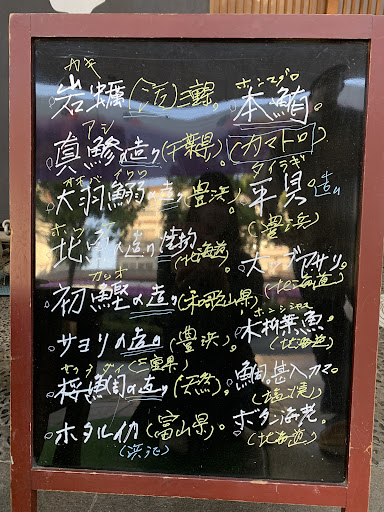 カキ
岩蠣(活)三重県。
アジ
真鯵の造り(千葉県)。
オオバイワシ
大羽鰯の造り(豊浜)。
ホッ
北
の造り
(北海道)
カツオ
初鰹の造り(和歌山県)
サヨリの造り(豊浜)。
サクラダイ(三重県)
桜鯛の造り(天然)。
ホタルイカ(富山県)。
ホンマグロ
本鮪。
(カマトロ)
タイラギ
平貝造り
(豊浜)
大ツブアサリ。
(北海道)
ホンシシャモ
本柳葉魚。
(北海道)
鯛カマ。
ボタン海老。
(北海道)